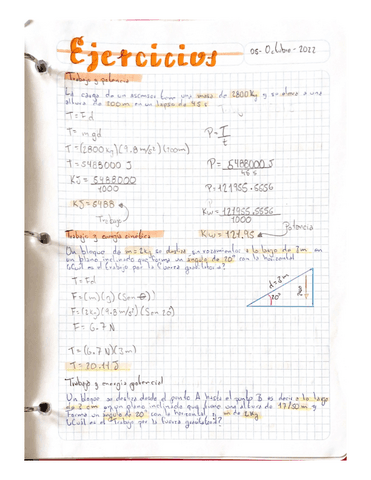 Ejercicios
05-Octubre-2022
Trabajo y potencia
La carga de un ascensor tiene una masa de 2800 Kg y se eleva a una
altura de 200m en un lapso de 45 s
T = F d
T = m.g.d
T = (2800 kg)(9.8 m/s²)(200m)
T = 5488000 J
KJ = 5488000 / 1000
KJ = 5488
Trabajo
P = T / t
P = 5488000 J / 45 s
P = 121955.5556
Kw = 121955.5556 / 1000
Kw = 121.95
Potencia
Trabajo y energía cinética
Un bloque de m = 2kg se desliza sin rozamiento a lo largo de 3m en
un plano inclinado que forma un ángulo de 20° con la horizontal
¿Cuál es el trabajo por la fuerza gravitatoria?
T = F d
F = (m)(g)(Sen θ)
F = (2kg)(9.8 m/s²)(Sen 20°)
F = 6.7 N
T = (6.7 N)(3m)
T = 20.11 J
d = 3m
20°
Trabajo y energía potencial
Un bloque se desliza desde el punto A hasta el punto B es decir a lo largo
de 3 cm en un plano inclinado que tiene una altura de 17/50 m y
forma un ángulo de 20° con la horizontal y m de 2Kg
¿Cuál es el trabajo por la fuerza gravitatoria?